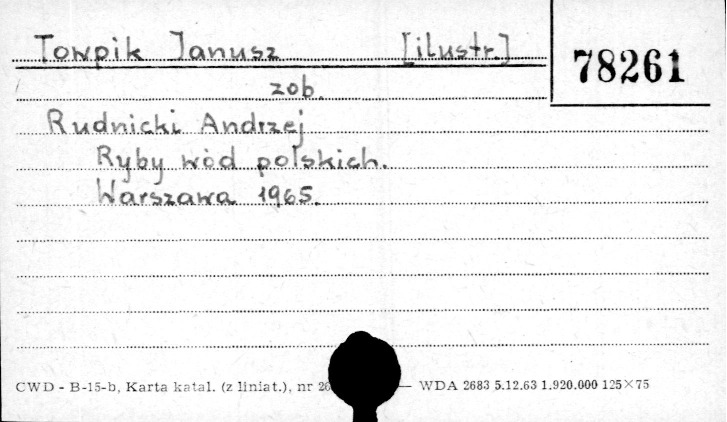 Towpik Janusz [ilustr.]
78261
zob.
Rudnicki Andrzej
Ryby wód polskich.
Warszawa 1965.
CWD - B-15-b, Karta katal. (z liniat.), nr — WDA 2683 5.12.63 1.920.000 125×75